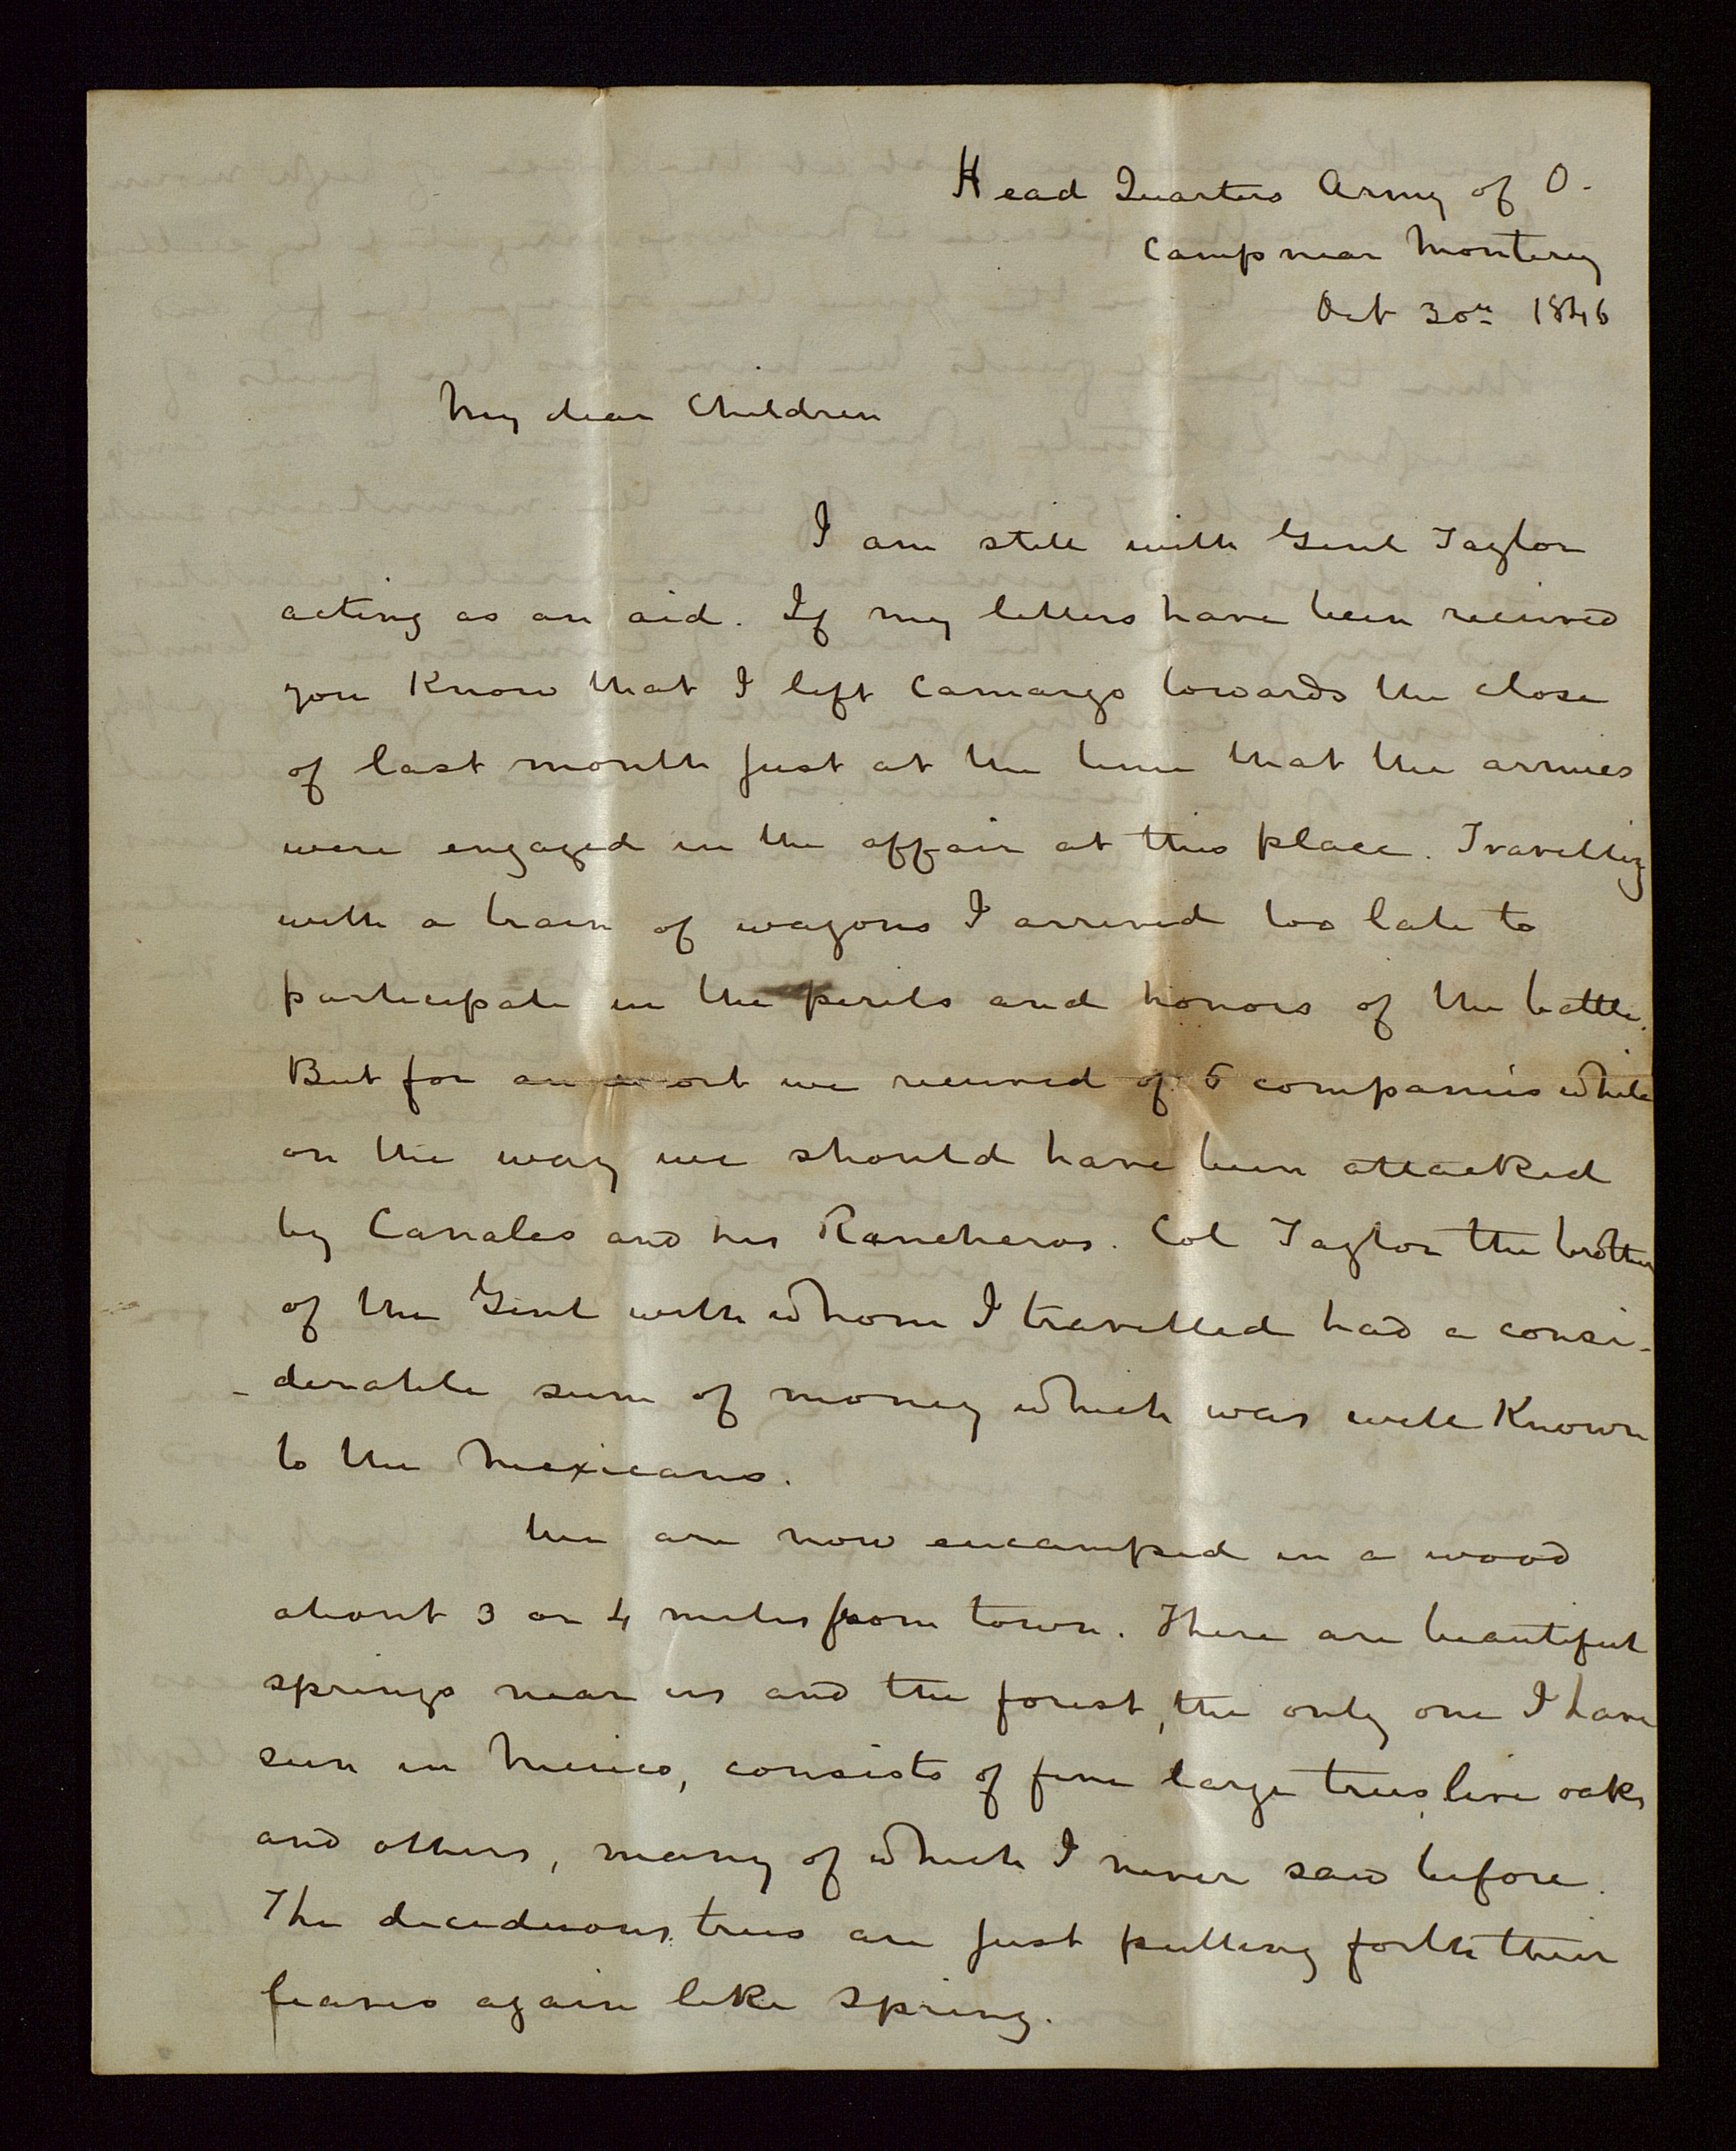 Head Quarters Army of O.
Camp near Monterey
Oct 30th 1846
My dear Children
I am still with Genl Taylor
acting as an aid. If my letters have been received
you Know that I left Camargo towards the close
of last month just at the time that the armies
were engaged in the affair at this place. Travelling
with a train of wagons I arrived too late to
participate in the perils and honors of the battle.
But for an escort we received of 5 companies while
on the way we should have been attacked
by Canales and his Rancheros. Col Taylor the brother
of the Genl with whom I travelled had a consi-
-derable sum of money which was well Known
to the Mexicans.
We are now encamped in a wood
about 3 or 4 miles from town. There are beautiful
springs near us and the forest, the only one I have
seen in Mexico, consists of fine large trees, live oaks
and others, many of which I never saw before.
The deciduous trees are just putting forth their
leaves again like Spring.